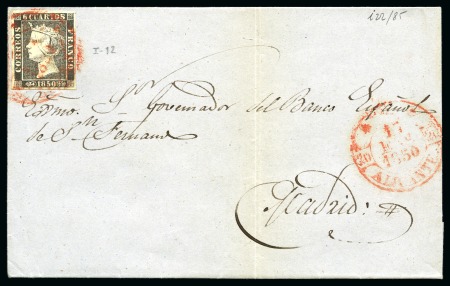 6 CUAR.S 6
CORREOS
FRANCO
1850
I-12
i22/85
Exmo. Sor Governador del Banco Español
de Sn Fernando
Madrid:
17
1850
ALICANTE
20